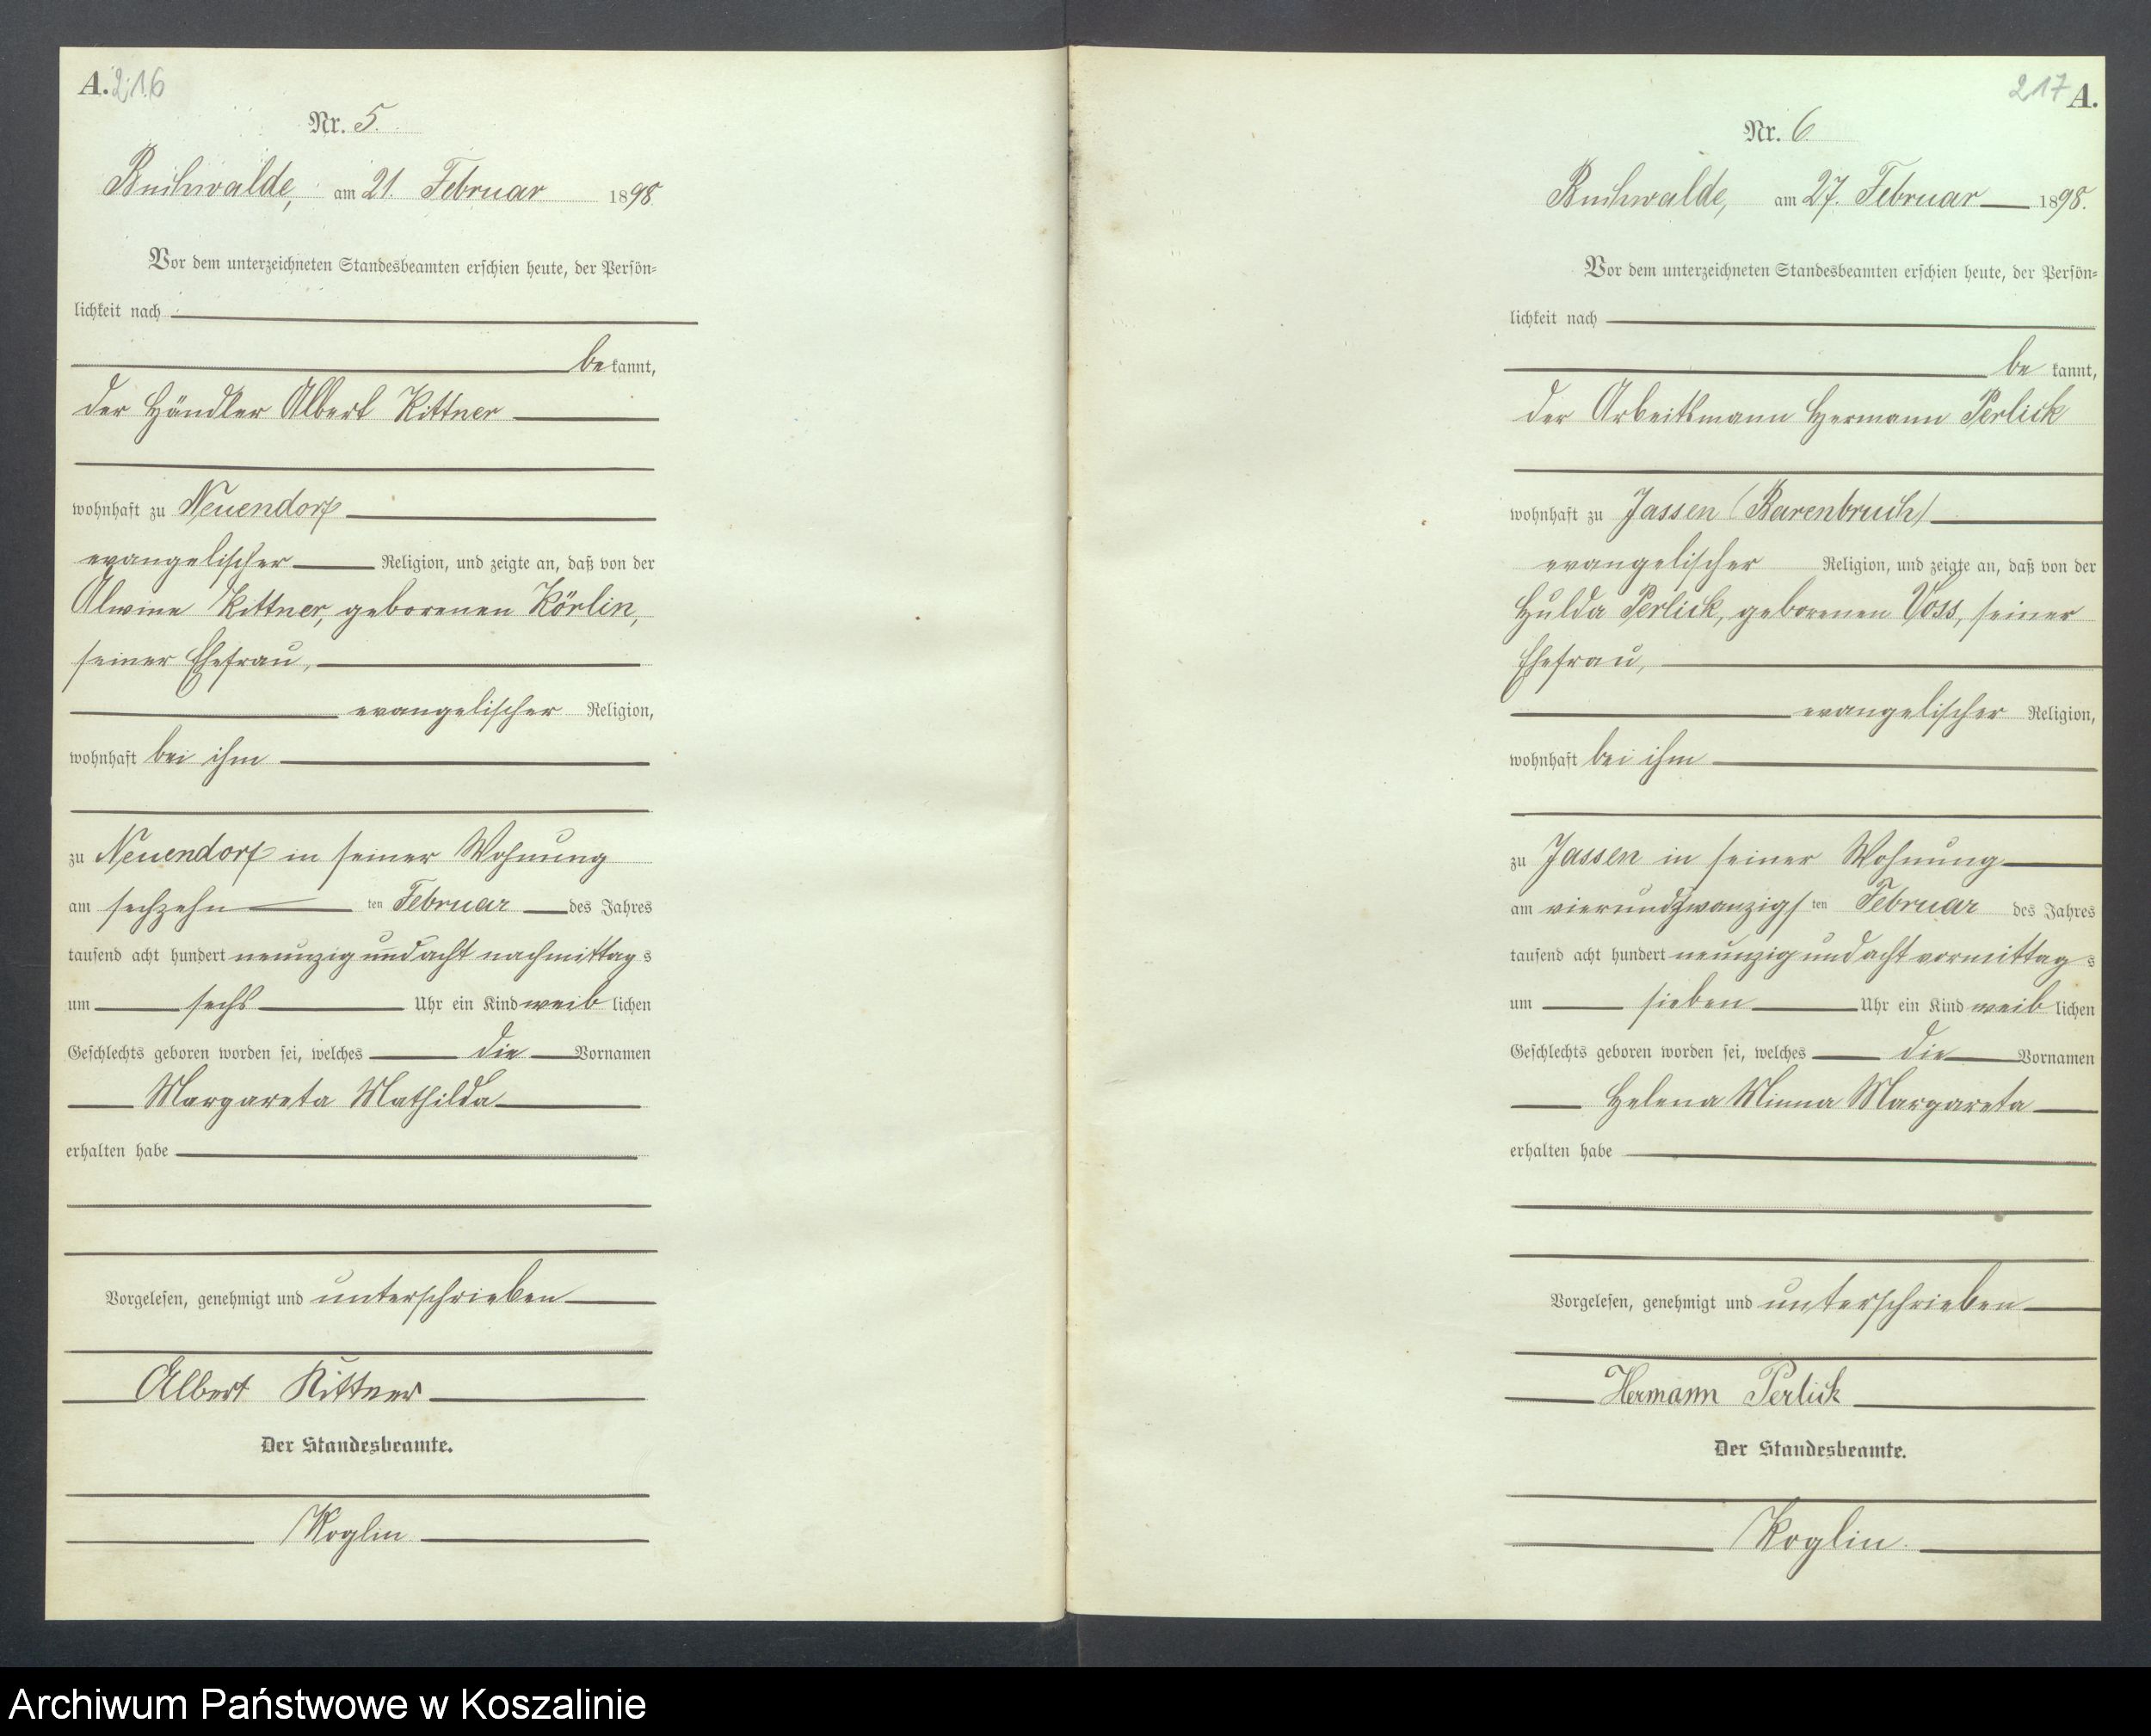 A. 216
Nr. 5.
Buchwalde, am 21. Februar 1898
Vor dem unterzeichneten Standesbeamten erschien heute, der Persön=
lichkeit nach
be kannt,
der Händler Albert Kittner
wohnhaft zu Neuendorf
evangelischer Religion, und zeigte an, daß von der
Alwine Kittner, geborenen Körlin,
seiner Ehefrau,
evangelischer Religion,
wohnhaft bei ihm
zu Neuendorf in seiner Wohnung
am sechzehn ten Februar des Jahres
tausend acht hundert neunzig und acht nachmittag s
um sechs Uhr ein Kind weib lichen
Geschlechts geboren worden sei, welches die Vornamen
Margareta Mathilda
erhalten habe
Vorgelesen, genehmigt und unterschrieben
Albert Kittner
Der Standesbeamte.
Koglin
217 A.
Nr. 6
Buchwalde, am 27. Februar 1898.
Vor dem unterzeichneten Standesbeamten erschien heute, der Persön=
lichkeit nach
be kannt,
der Arbeitsmann Hermann Perlick
wohnhaft zu Jassen (Barenbruch)
evangelischer Religion, und zeigte an, daß von der
Hulda Perlick, geborenen Voss, seiner
Ehefrau,
evangelischer Religion,
wohnhaft bei ihm
zu Jassen in seiner Wohnung
am vierundzwanzigs ten Februar des Jahres
tausend acht hundert neunzig und acht vormittag s
um sieben Uhr ein Kind weib lichen
Geschlechts geboren worden sei, welches die Vornamen
Helena Minna Margareta
erhalten habe
Vorgelesen, genehmigt und unterschrieben
Hermann Perlick
Der Standesbeamte.
Koglin.
Archiwum Państwowe w Koszalinie